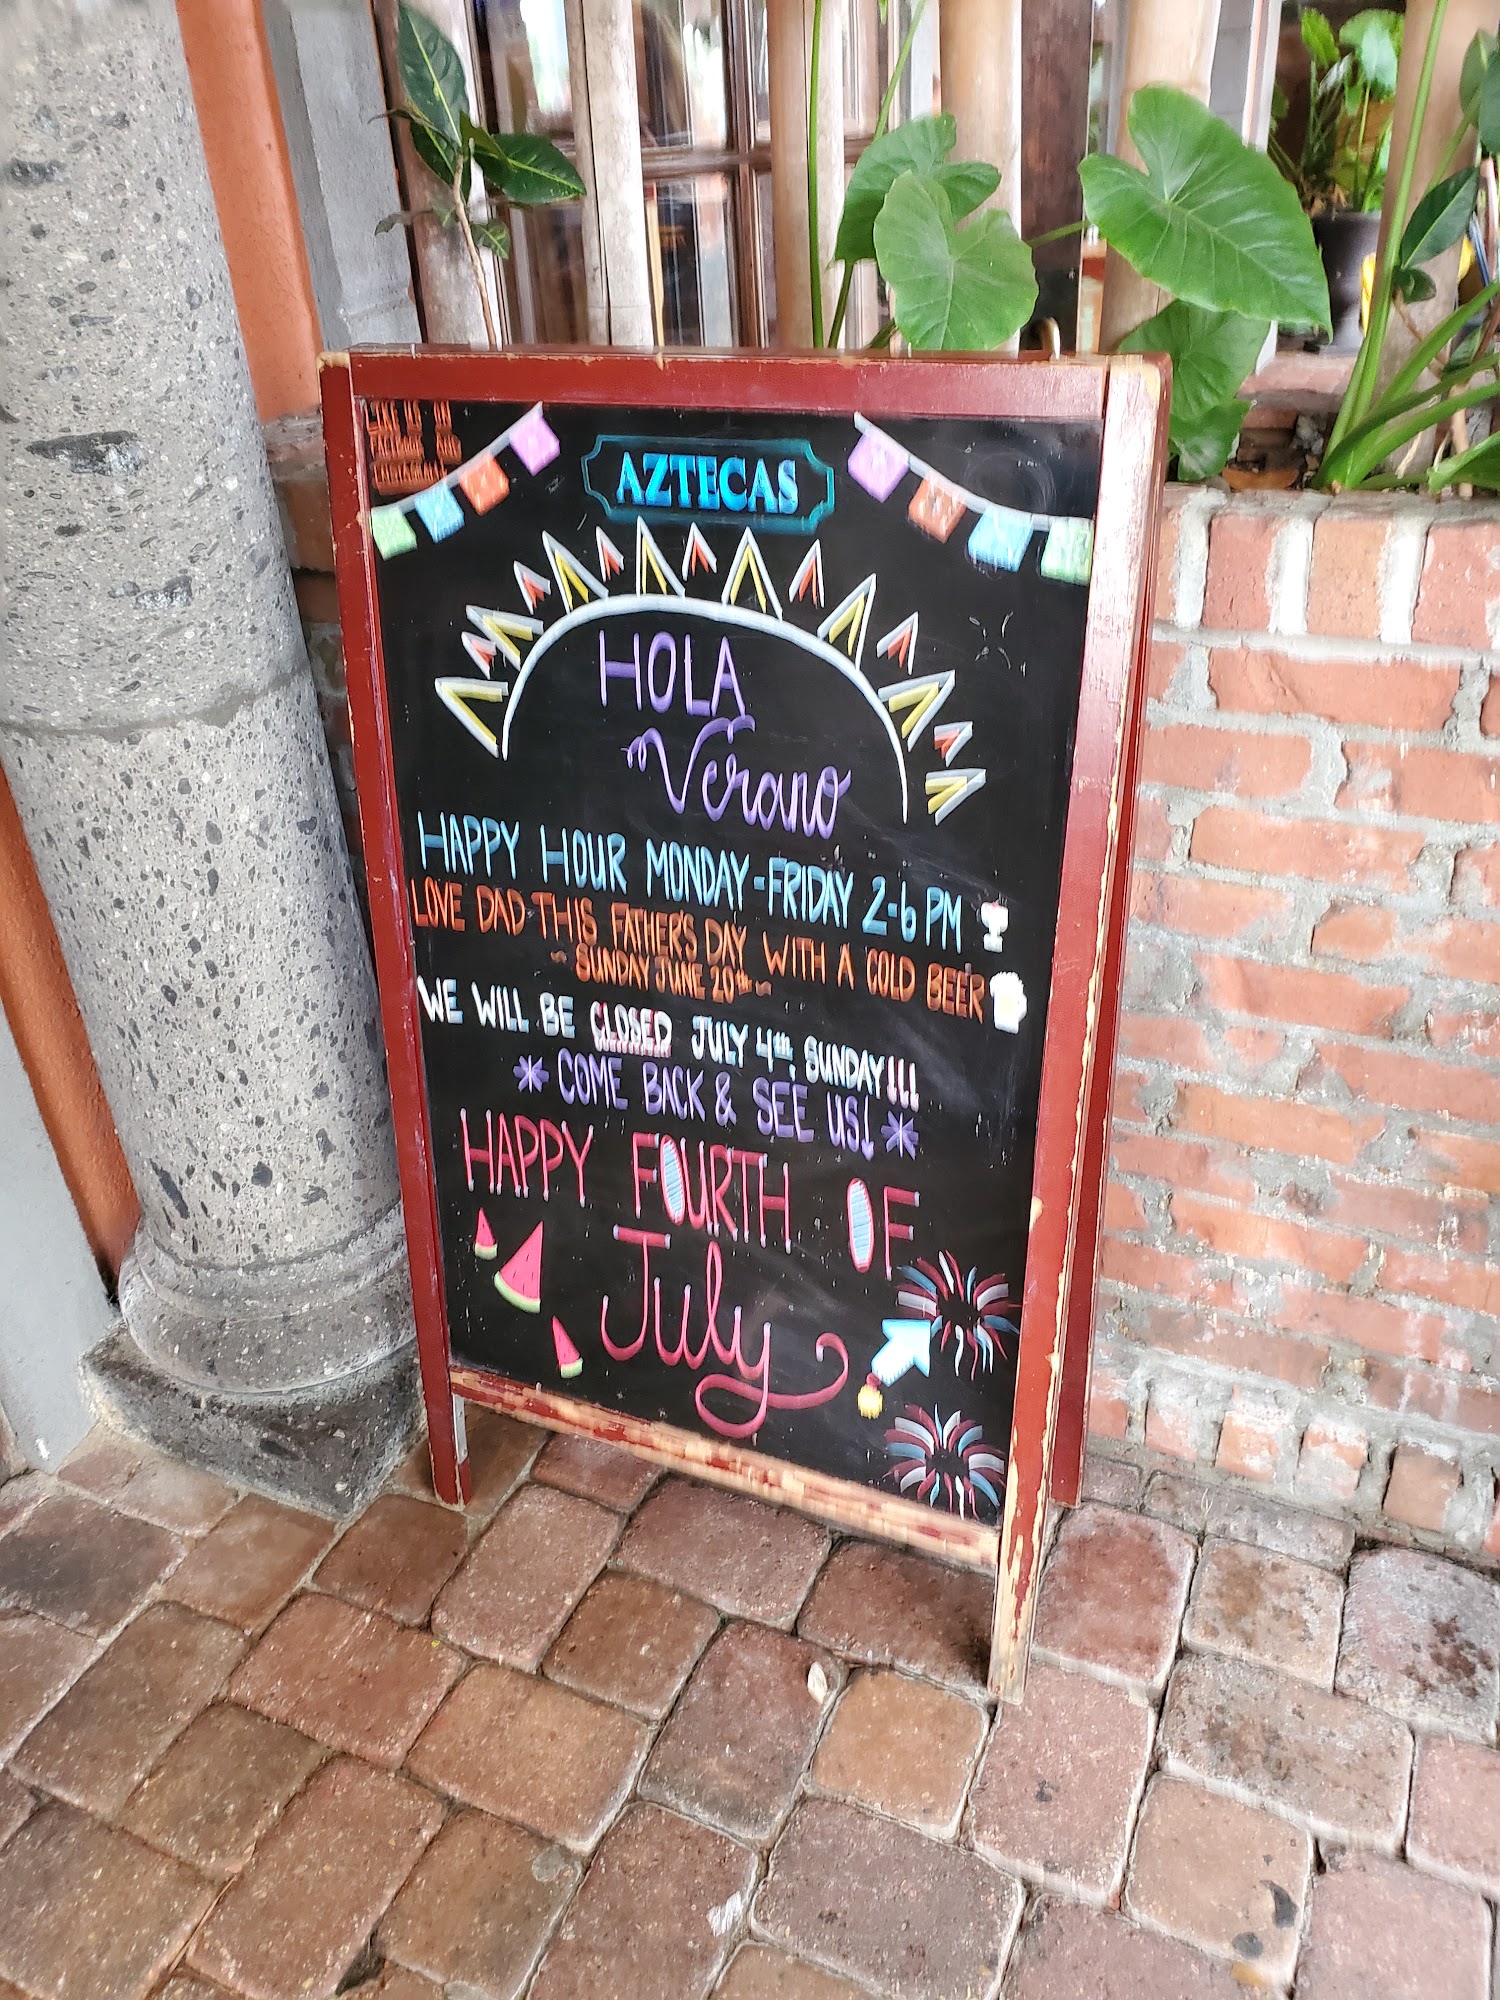 AZTECAS
HOLA
Verano
HAPPY HOUR MONDAY-FRIDAY 2-6 PM
LOVE DAD THIS FATHER'S DAY WITH A COLD BEER
~ SUNDAY JUNE 20th ~
WE WILL BE CLOSED JULY 4th, SUNDAY!!!
* COME BACK & SEE US! *
HAPPY FOURTH OF
July